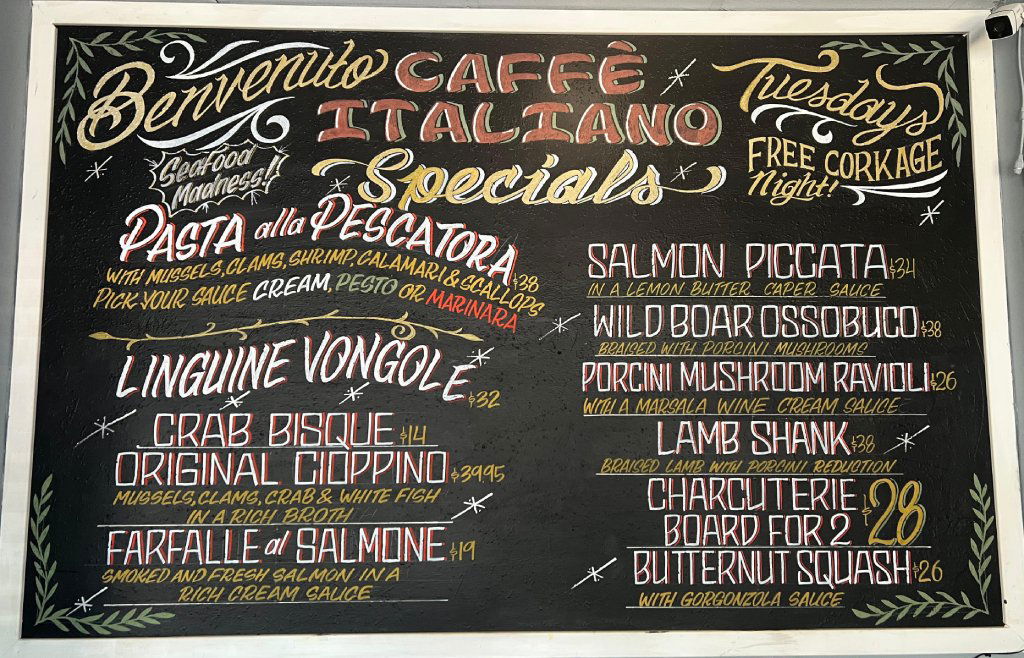 Benvenuto
CAFFÈ
ITALIANO
Specials
Tuesdays
FREE CORKAGE
Night!
Seafood
Madness!
PASTA alla PESCATORA $38
WITH MUSSELS, CLAMS, SHRIMP, CALAMARI & SCALLOPS
PICK YOUR SAUCE CREAM, PESTO OR MARINARA
LINGUINE VONGOLE $32
CRAB BISQUE $14
ORIGINAL CIOPPINO $39.95
MUSSELS, CLAMS, CRAB & WHITE FISH
IN A RICH BROTH
FARFALLE al SALMONE $19
SMOKED AND FRESH SALMON IN A
RICH CREAM SAUCE
SALMON PICCATA $34
IN A LEMON BUTTER CAPER SAUCE
WILD BOAR OSSOBUCO $38
BRAISED WITH PORCINI MUSHROOMS
PORCINI MUSHROOM RAVIOLI $26
WITH A MARSALA WINE CREAM SAUCE
LAMB SHANK $38
BRAISED LAMB WITH PORCINI REDUCTION
CHARCUTERIE
BOARD FOR 2 $28
BUTTERNUT SQUASH $26
WITH GORGONZOLA SAUCE